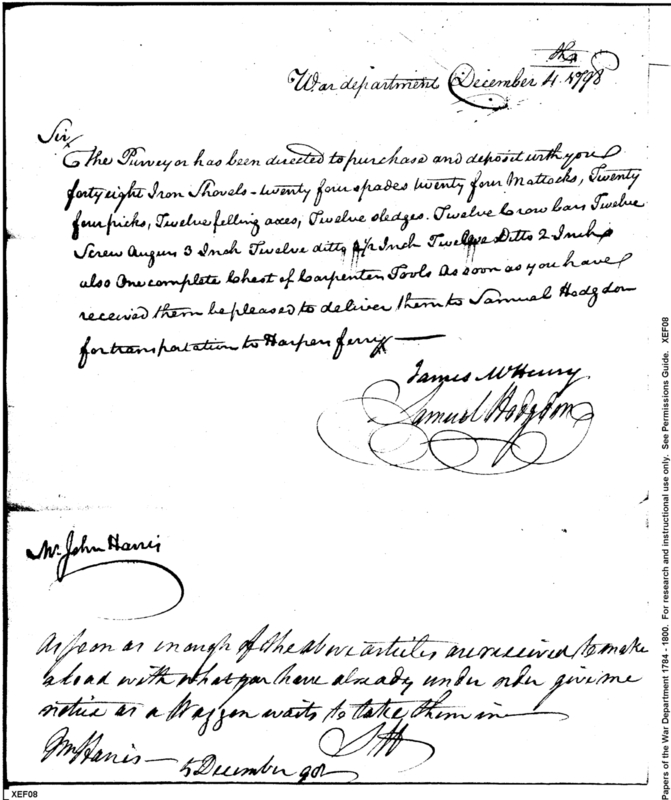 War department December 4th 1798
Sir
The Purveyor has been directed to purchase and deposit with you
forty eight Iron Shovels - twenty four spades twenty four Mattocks, Twenty
four picks, Twelve felling axes, Twelve sledges. Twelve Crow bars Twelve
Screw Augurs 3 Inch Twelve ditto 2½ Inch Twelve Ditto 2 Inch
also One complete Chest of Carpenters Tools As soon as you have
received them be pleased to deliver them to Samuel Hodgdon
for transportation to Harpers ferry —
James McHenry
Samuel Hodgdon
Mr. John Harris
As soon as enough of the above articles are received to make
a load with what you have already under order give me
notice as a Waggon waits to take them in
SH
Mr Harris —
5 December 98
XEF08
Papers of the War Department 1784 - 1800. For research and instructional use only. See Permissions Guide. XEF08